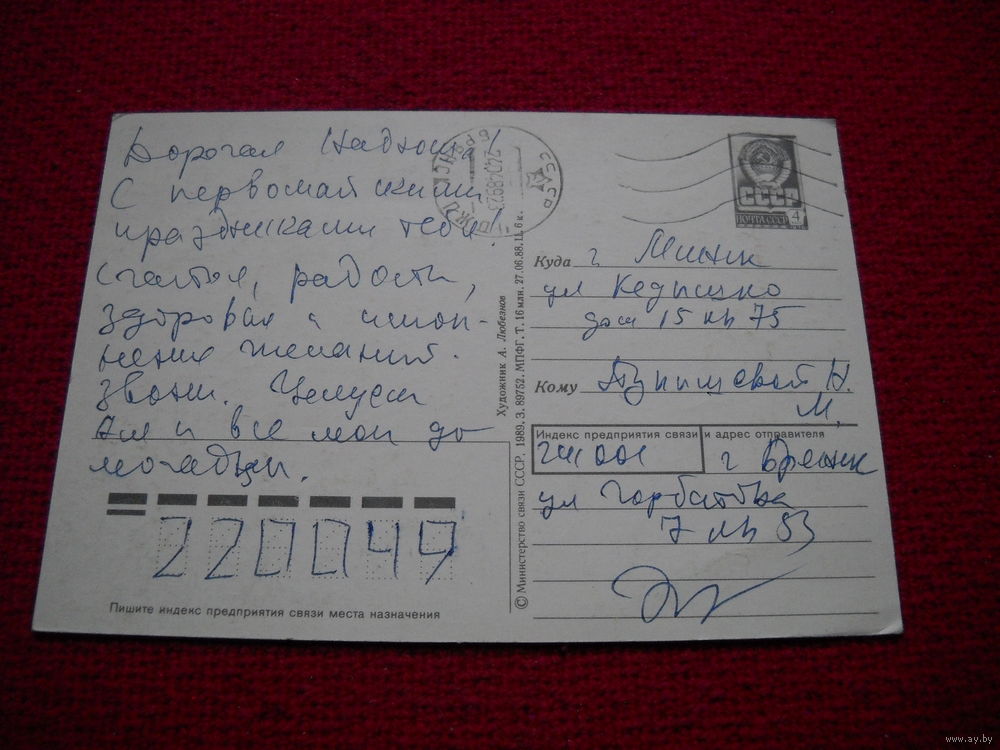 Дорогая Надюша!
С первомайскими
праздниками тебя!
Счастья, радости,
здоровья и испол-
нения желаний.
Звони. Целуем
Аля и все мои до
мочадцы.
220049
Пишите индекс предприятия связи места назначения
© Министерство связи СССР, 1989. З. 89752. МПФГ. Т. 16 млн. 27.06.88. Ц. 6 к.
Художник А. Любезнов
СССР
СССР
ПОЧТА СССР 4
Куда г. Минск
ул Кедышко
дом 15 кв 75
Кому Н.
М.
Индекс предприятия связи и адрес отправителя
г Брянск
ул Горбатова
7 кв 53
www.ay.by